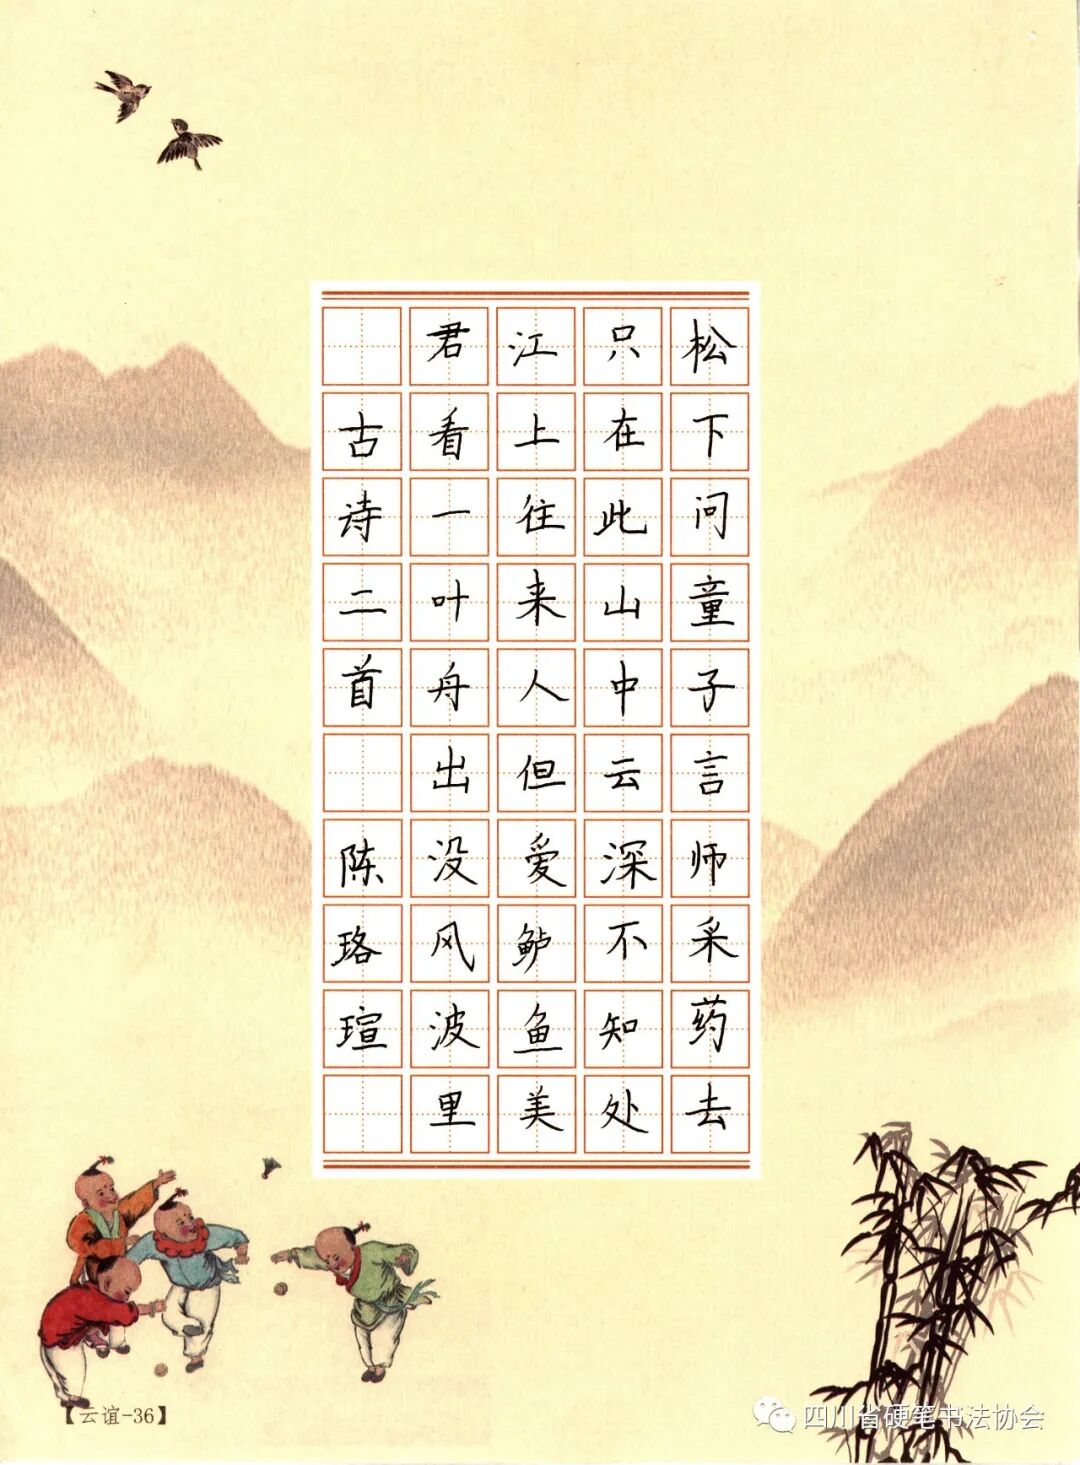 松下问童子言师采药去
只在此山中云深不知处
江上往来人但爱鲈鱼美
君看一叶舟出没风波里
古诗二首 陈珞瑄
【云谊-36】
四川省硬笔书法协会